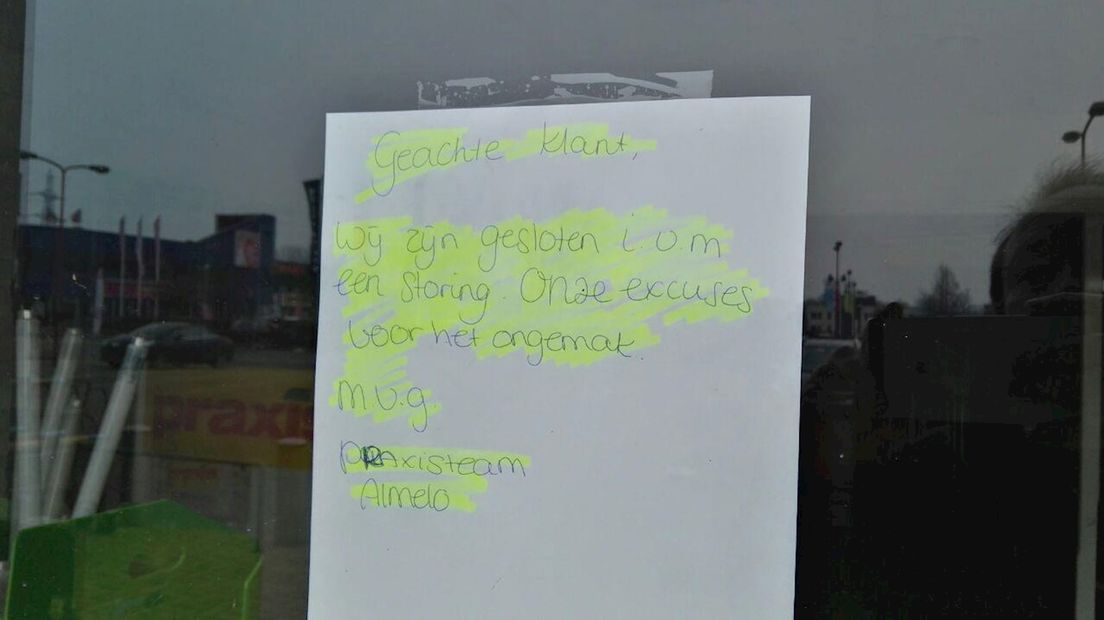 Geachte klant,
Wij zijn gesloten i.v.m
een storing. Onze excuses
voor het ongemak.
M.v.g
PRAxisteam
Almelo
praxis